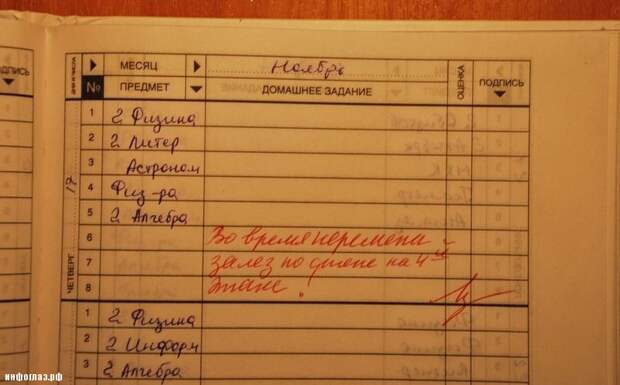 ПОДПИСЬ
ДНИ И ЧИСЛА МЕСЯЦ Ноябрь ОЦЕНКА ПОДПИСЬ
№ ПРЕДМЕТ ДОМАШНЕЕ ЗАДАНИЕ
ЧЕТВЕРГ 17
1 2 Физика
2 2 Литер
3 Астроном
4 Физ-ра
5 2 Алгебра
6 Во время перемены
7 залез по стене на 4-й
8 этаж!
1 2 Физика
2 2 Информ
3 2 Алгебра
инфоглаз.рф